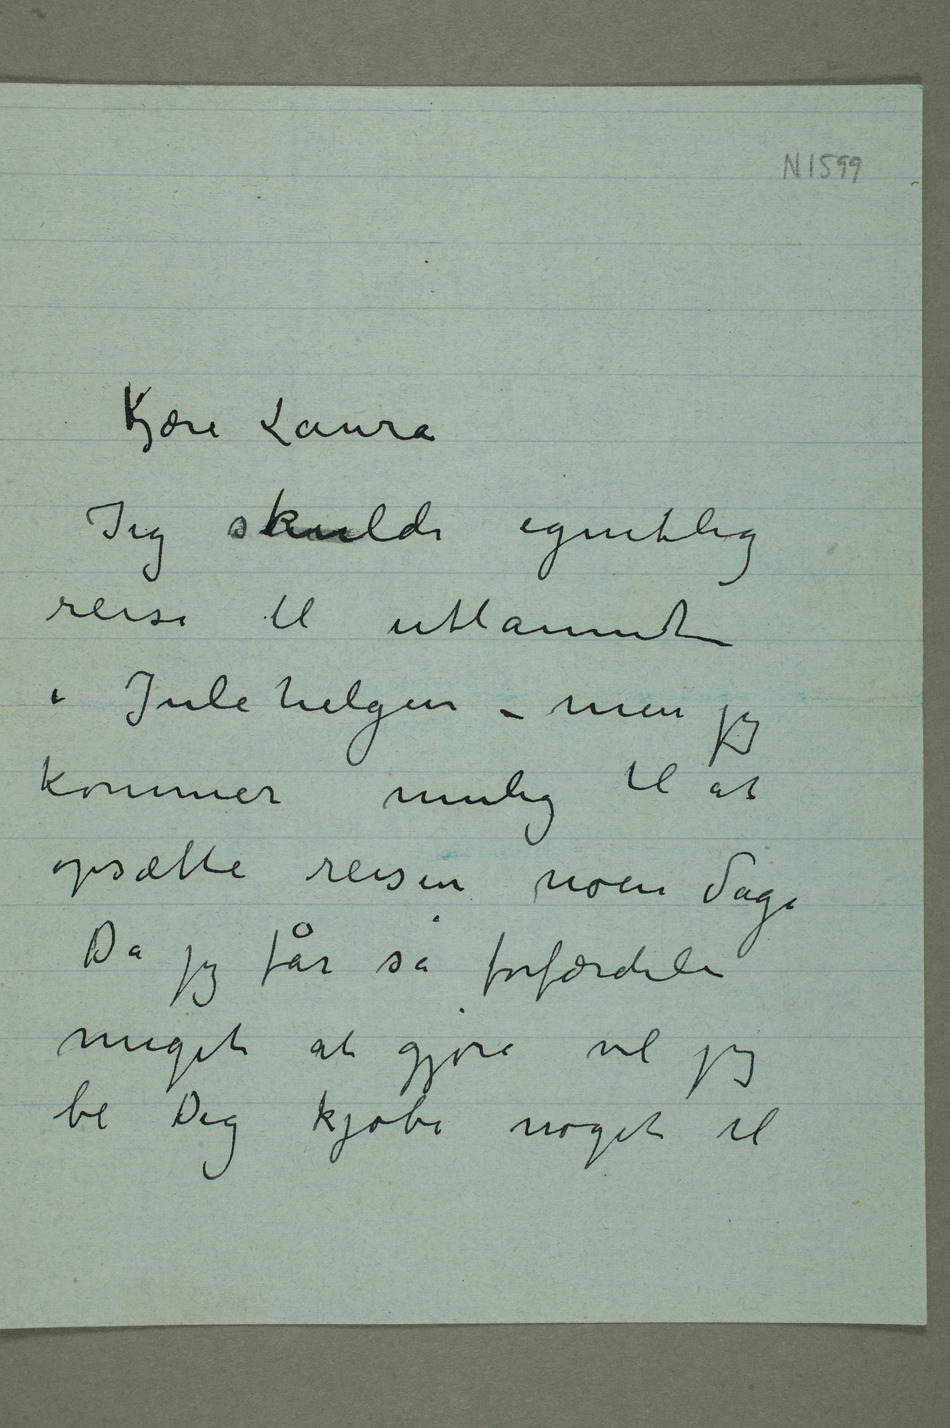 N 1599
Kjære Laura
Jeg skulde egentlig
reise til utlannet
i Julehelgen – men jeg
kommer mulig til at
opsætte reisen noen dage
Da jeg får så forfærdele
meget at gjøre vil jeg
be Dig kjøbe noget til